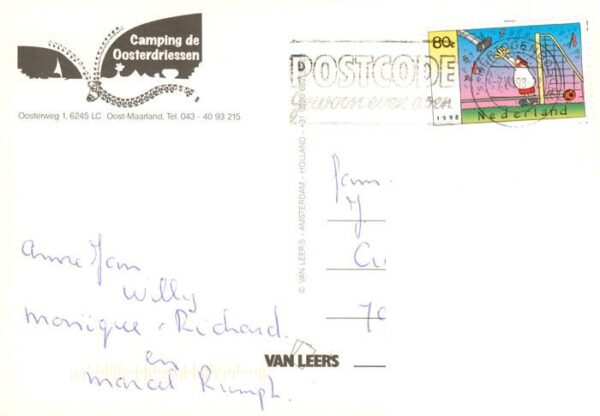 Camping de
Oosterdriessen
Oosterweg 1, 6245 LC Oost-Maarland, Tel. 043 - 40 93 215
80c
1998
Nederland
POSTCODE
Gewoon even doen
© VAN LEER'S - AMSTERDAM - HOLLAND -
Fam.
J.
Anne Jan
Willy
Monique - Richard.
en
Marcel Rumph.
VAN LEER'S